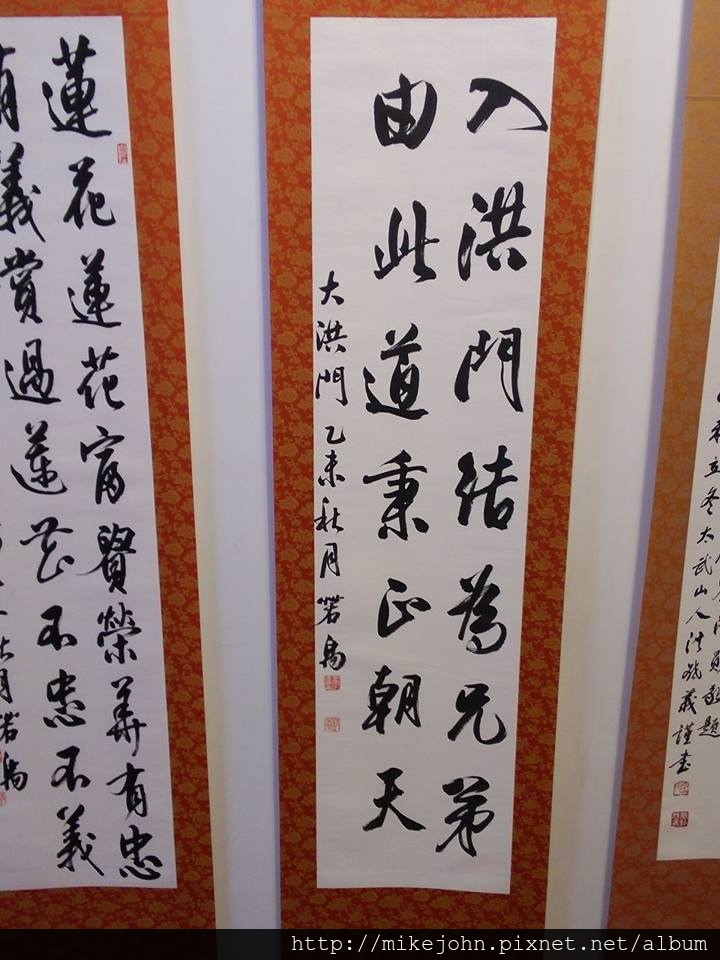 立冬太武山人
義謹書
入洪門結為兄弟
由此道秉正朝天
大洪門乙未秋月
蓮花蓮花富貴榮華有忠
有義賞過蓮花不忠不義
http://mikejohn.pixnet.net/album